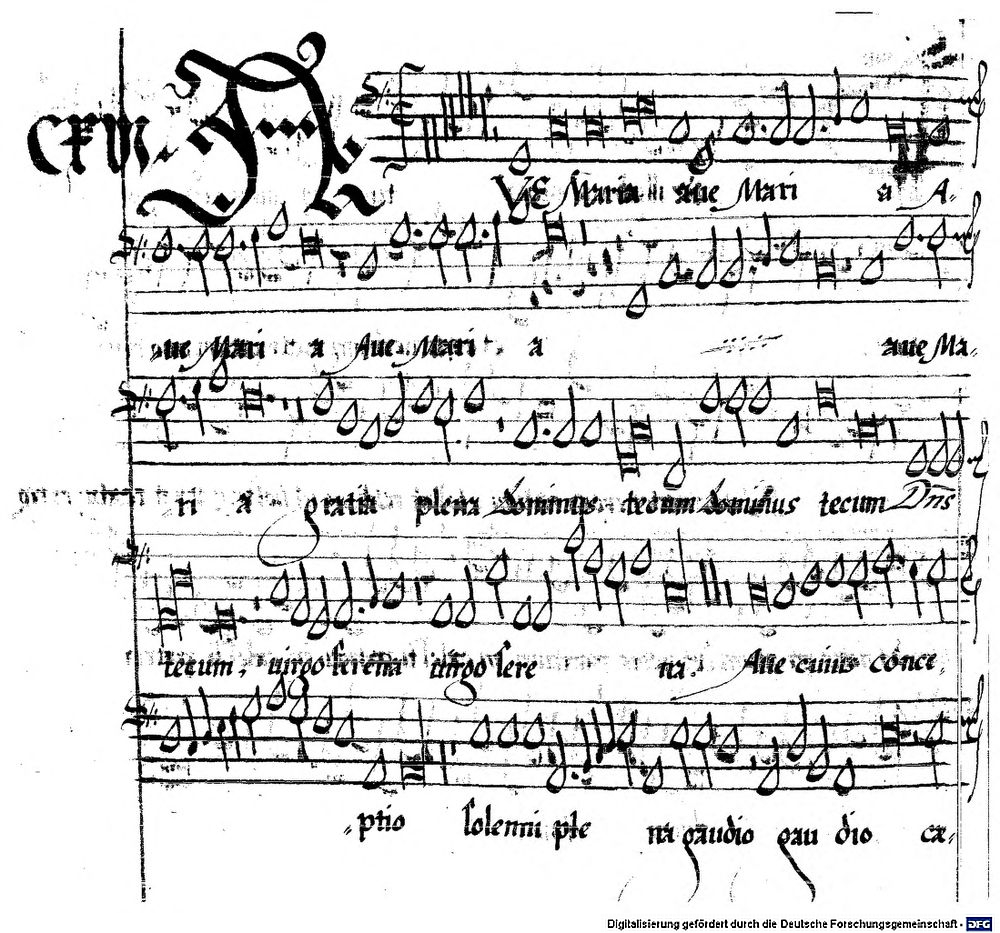 CXVII A
VE Maria iii aue Mari a A-
ue Mari a Aue Mari a aue Ma-
ri a gratia plena dominus tecum dominus tecum Dn̄s
tecum, uirgo serena uirgo sere na. Aue cuius cōnce,
ptio solemni ple na gaudio gau dio cæ-
Digitalisierung gefördert durch die Deutsche Forschungsgemeinschaft - DFG